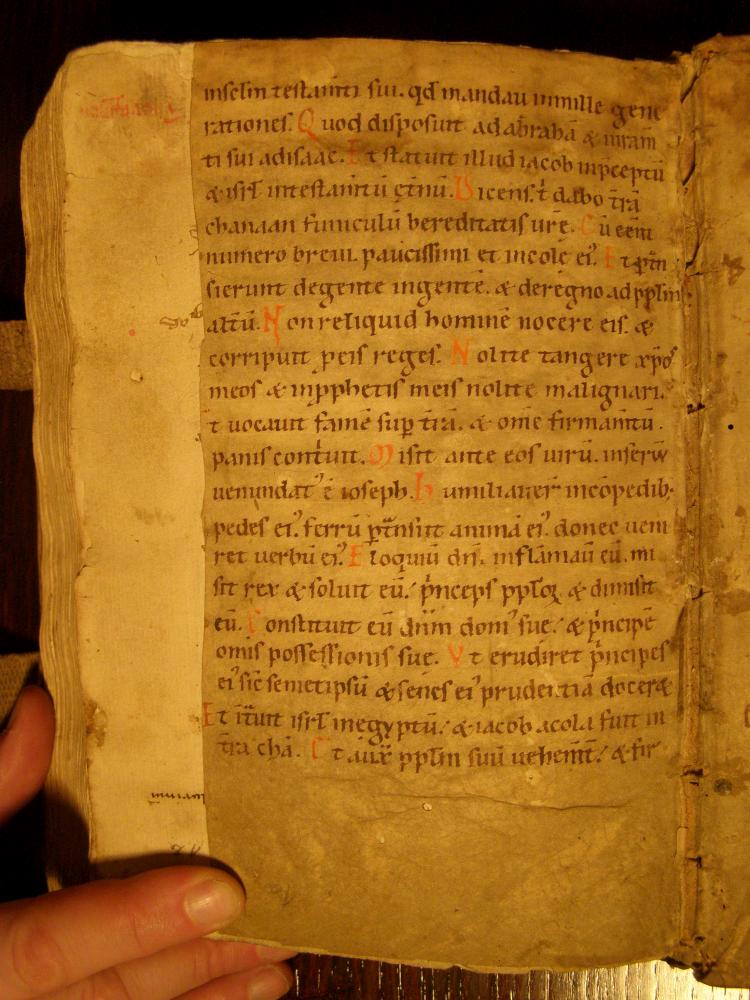 inseclm testamti sui. qd mandau inmille gene
rationes. Quod disposuit ad abrahā & iuram
ti sui adisaac. Et statuit illud iacob inpceptū
& isrl intestamtū etnū. Dicens. t dabo trā
chanaan funiculū hereditatis ure. Cū eent
numero breui. paucissimi et incole ei'. Et ptn
sierunt degente ingentē. & deregno ad pplm
altū. Non reliquid hominē nocere eis. &
corripuit p eis reges. Nolite tangere xpos
meos & inpphetis meis nolite malignari.
t uocauit famē sup trā. & omē firmamtū.
panis contuit. Misit ante eos uirū. inseru
uenundat' ē ioseph. Humiliauer incōpedib;
pedes ei'. ferrū ptnsiit animā ei'. donec ueni
ret uerbū ei'. Eloquiū dni. inflāmau eū. mi
sit rex & soluit eū. pnceps pploꝝ & dimisit
eū. Constituit eū dnm dom' sue. & pncipē
omis possessionis sue. Vt erudiret pncipes
ei' sic semetipsū & senes ei' prudentiā doceret
Et ituit isrl inegyptū. & iacob acola fuit in
tra chā. Et aux pplm suū uehemt. & fir